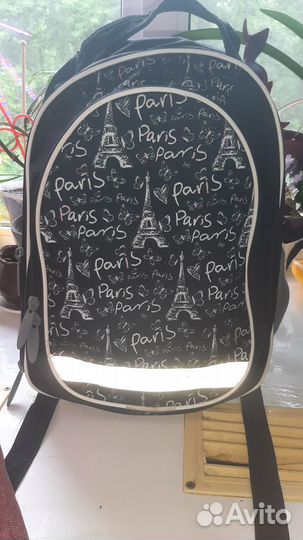 Paris
paris
Paris
Paris
paris
Paris
Paris
Paris
paris
Paris
Paris
Paris
Paris
Paris
Paris
Paris
Paris
Paris
Avito